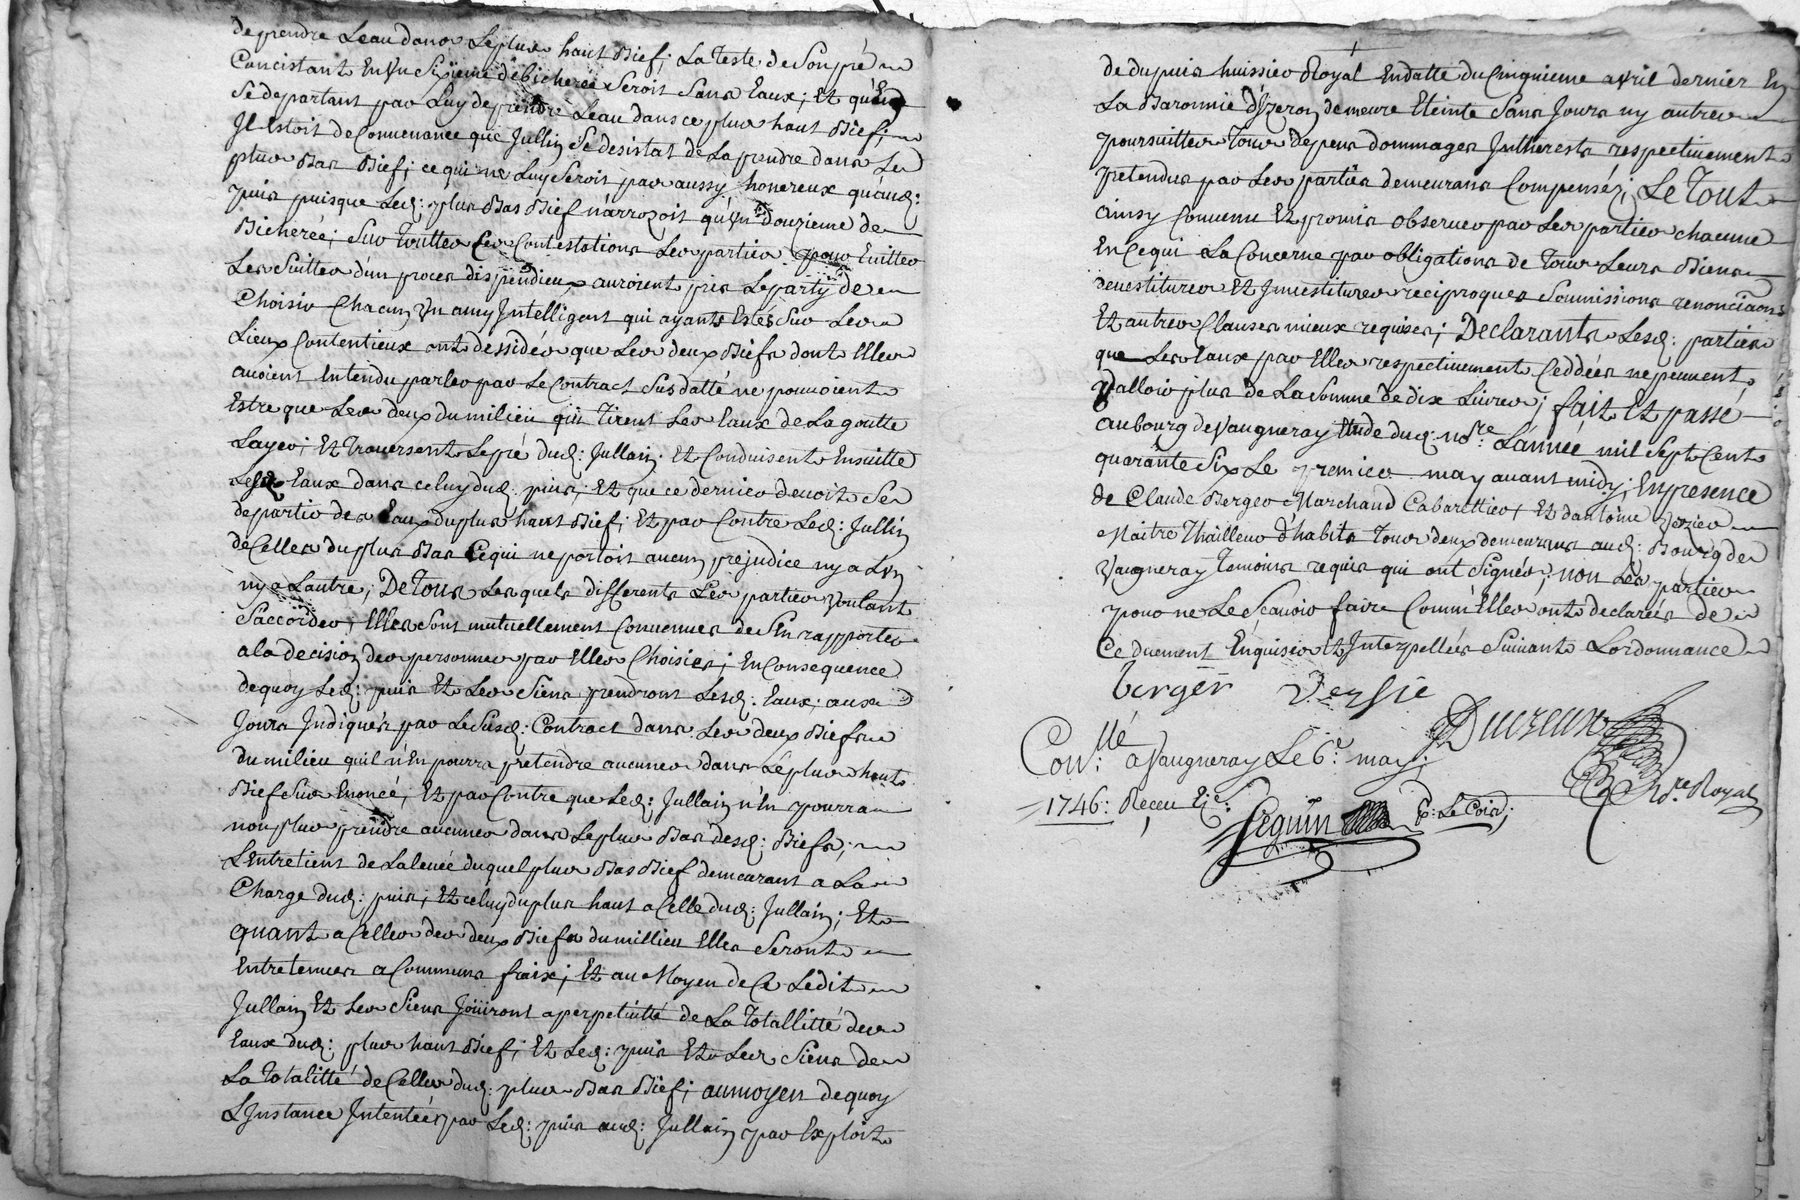 de prendre Leau dans Le plus haut Bief; La Teste de Son pré
Concistant En Un Sixieme de bicherée Seroit Sans Eaux; Et qu'En
Se departant par Luy de prendre Leau dans ce plus haut Bief;
Il Estoit de Convenance que Jullin Se desistat de La prendre dans Le
plus Bas Bief; ce qui ne Luy Seroit pas aussy honereux qu'aud:
puis puisque Led: plus Bas Bief n'arrozoit qu'Un douzieme de
Bicherée; Sur Touttes Ces Contestations Les parties pour Evitter
Les Suittes d'un proces dispendieux auroient pris Le party de
Choisir Chacun Un amy Intelligent qui ayants Estés Sur Les
Lieux Contentieux ont dessidés que Les deux Biefs dont Elles
avoient Entendu parler par Le Contract Susdatté ne pouvoient
Estre que Les deux du milieu qui Tirent Les Eaux de La goutte
Layer; Et Traversent Le pré dud: Jullain; Et Conduisent Ensuitte
Lesd: Eaux dans celuy dud: puis; Et que ce dernier devoit Se
departir des Eaux du plus haut Bief; Et par Contre Led: Jullin
de Celles du plus Bas Ce qui ne portoit aucun prejudice ny a Lun
ny a Lautre; De Tous Lesquels differents Les parties Voulant
Saccorder, Elles Sont mutuellement Convenues de S'En rapporter
a la decision des personnes par Elles Choisies; En Consequence
de quoy Led: puis Et Les Siens prendront Lesd: Eaux; aux
Jours Indiqués par Le Susd: Contract dans Les deux Biefs
du milieu qu'il n'En pourra pretendre aucunes dans Le plus haut
Bief Sus Enoncé; Et par Contre que Led: Jullain n'En pourra
non plus prendre aucunes dans Le plus Bas desd: Biefs;
L'Entretient de La levée duquel plus Bas Bief demeurant a La
Charge dud: puis; Et celuy du plus haut a Celle dud: Jullain; Et
quant a Celles des deux Biefs du millieu Elles Seront
Entretenues a Communs fraix; Et au Moyen de Ce Ledit
Jullain Et Les Siens Joüiront a perpetuitté de La Totallitté des
Eaux dud: plus haut Bief; Et Led: puis Et Les Siens de
La Totalitté de Celles dud: plus Bas Bief; au moyen de quoy
L'Instance Intentéés par Led: puis aud: Jullain par Exploit
de dupuis huissier Royal En datte du Cinquieme avril dernier En
La Baronnie d'Yzeron demeure Eteinte Sans Jours ny autres
poursuittes Tous depens dommages Intherests respectivement
pretendus par Les parties demeurans Compenséz; Le Tout
ainsy Convenu Et promis observer par Les parties chacune
En Ce qui La Concerne par obligations de Tous Leurs Biens
devestitures Et Investitures reciproques Soumissions renonciaons
Et autres Clauses mieux requises; Declarants Lesd: parties
que Les Eaux par Elles respectivement Ceddées ne peuvent
Valloir plus de La Somme de dix Livres; fait Et passé
au bourg de Vaugneray Etude dud: no:re L'année mil Sept Cent
quarante Six Le premier may avant midy; En presence
de Claude Berger Marchand Cabarettier, Et d'antoine Verzier
Maitre Tailleur d'habits Tous deux demeurans aud: Bourg de
Vaugneray Temoins requis qui ont Signés; non Les parties
pour ne Le Scavoir faire Comm'Elles ont declarées de
Ce duement Enquises Et Interpellées Suivant Lordonnance
berger Versie
Ducreux
Con:llé a Vaugneray Le 6e. may;
No:re Royal
1746: Receu
Seguin